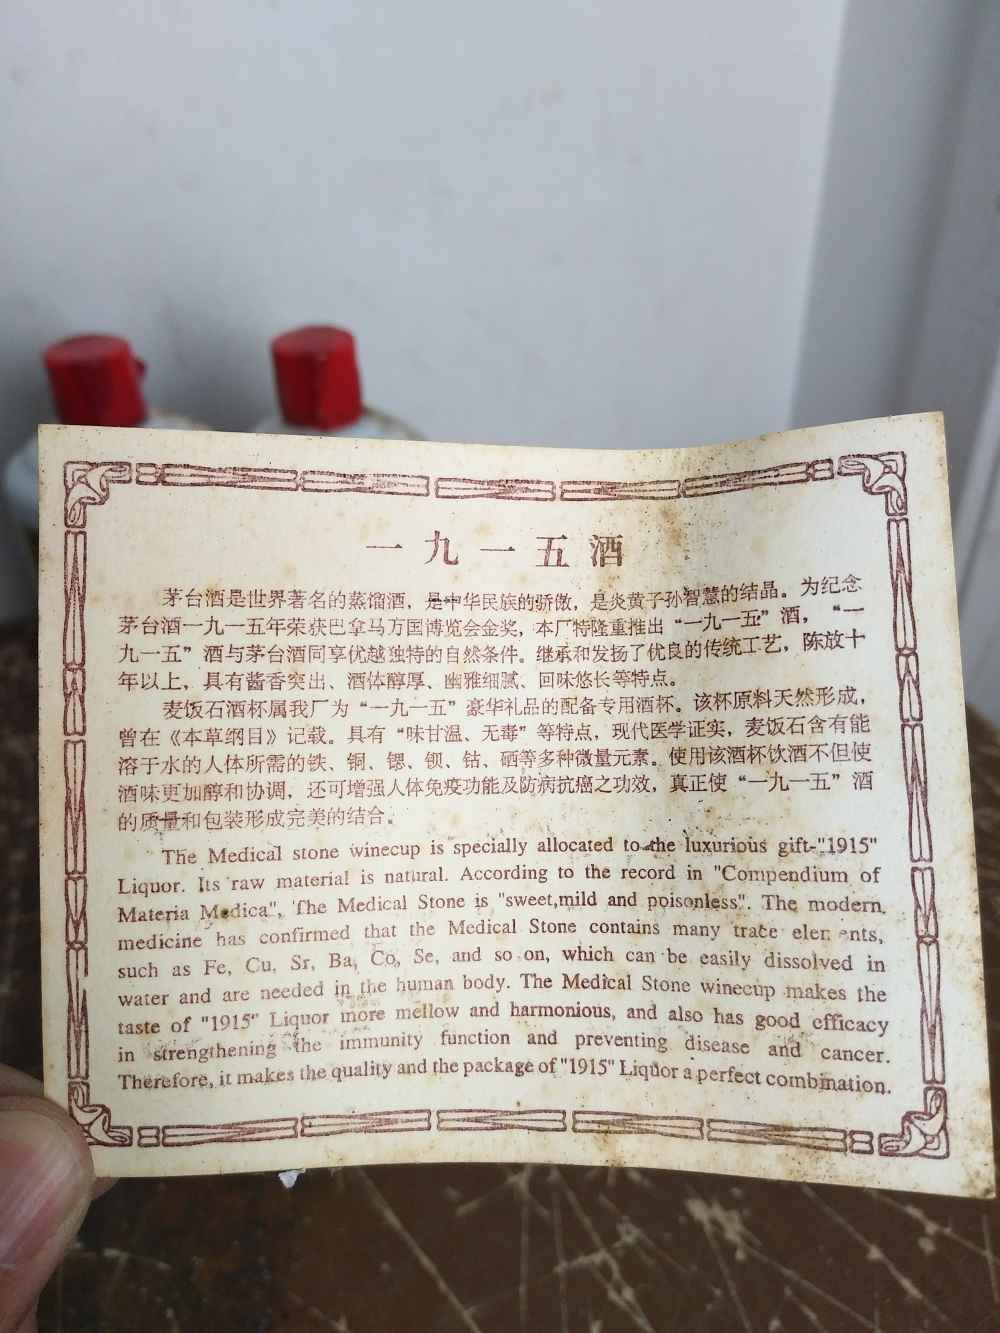 一九一五酒
茅台酒是世界著名的蒸馏酒，是中华民族的骄傲，是炎黄子孙智慧的结晶。为纪念
茅台酒一九一五年荣获巴拿马万国博览会金奖，本厂特隆重推出“一九一五”酒，“一
九一五”酒与茅台酒同享优越独特的自然条件。继承和发扬了优良的传统工艺，陈放十
年以上，具有酱香突出、酒体醇厚、幽雅细腻、回味悠长等特点。
麦饭石酒杯属我厂为“一九一五”豪华礼品的配备专用酒杯。该杯原料天然形成，
曾在《本草纲目》记载。具有“味甘温、无毒”等特点，现代医学证实，麦饭石含有能
溶于水的人体所需的铁、铜、锶、钡、钴、硒等多种微量元素。使用该酒杯饮酒不但使
酒味更加醇和协调，还可增强人体免疫功能及防病抗癌之功效，真正使“一九一五”酒
的质量和包装形成完美的结合。
The Medical stone winecup is specially allocated to the luxurious gift-"1915"
Liquor. Its raw material is natural. According to the record in "Compendium of
Materia Medica", The Medical Stone is "sweet,mild and poisonless". The modern
medicine has confirmed that the Medical Stone contains many trace elements,
such as Fe, Cu, Sr, Ba, Co, Se, and so on, which can be easily dissolved in
water and are needed in the human body. The Medical Stone winecup makes the
taste of "1915" Liquor more mellow and harmonious, and also has good efficacy
in strengthening the immunity function and preventing disease and cancer.
Therefore, it makes the quality and the package of "1915" Liquor a perfect combination.